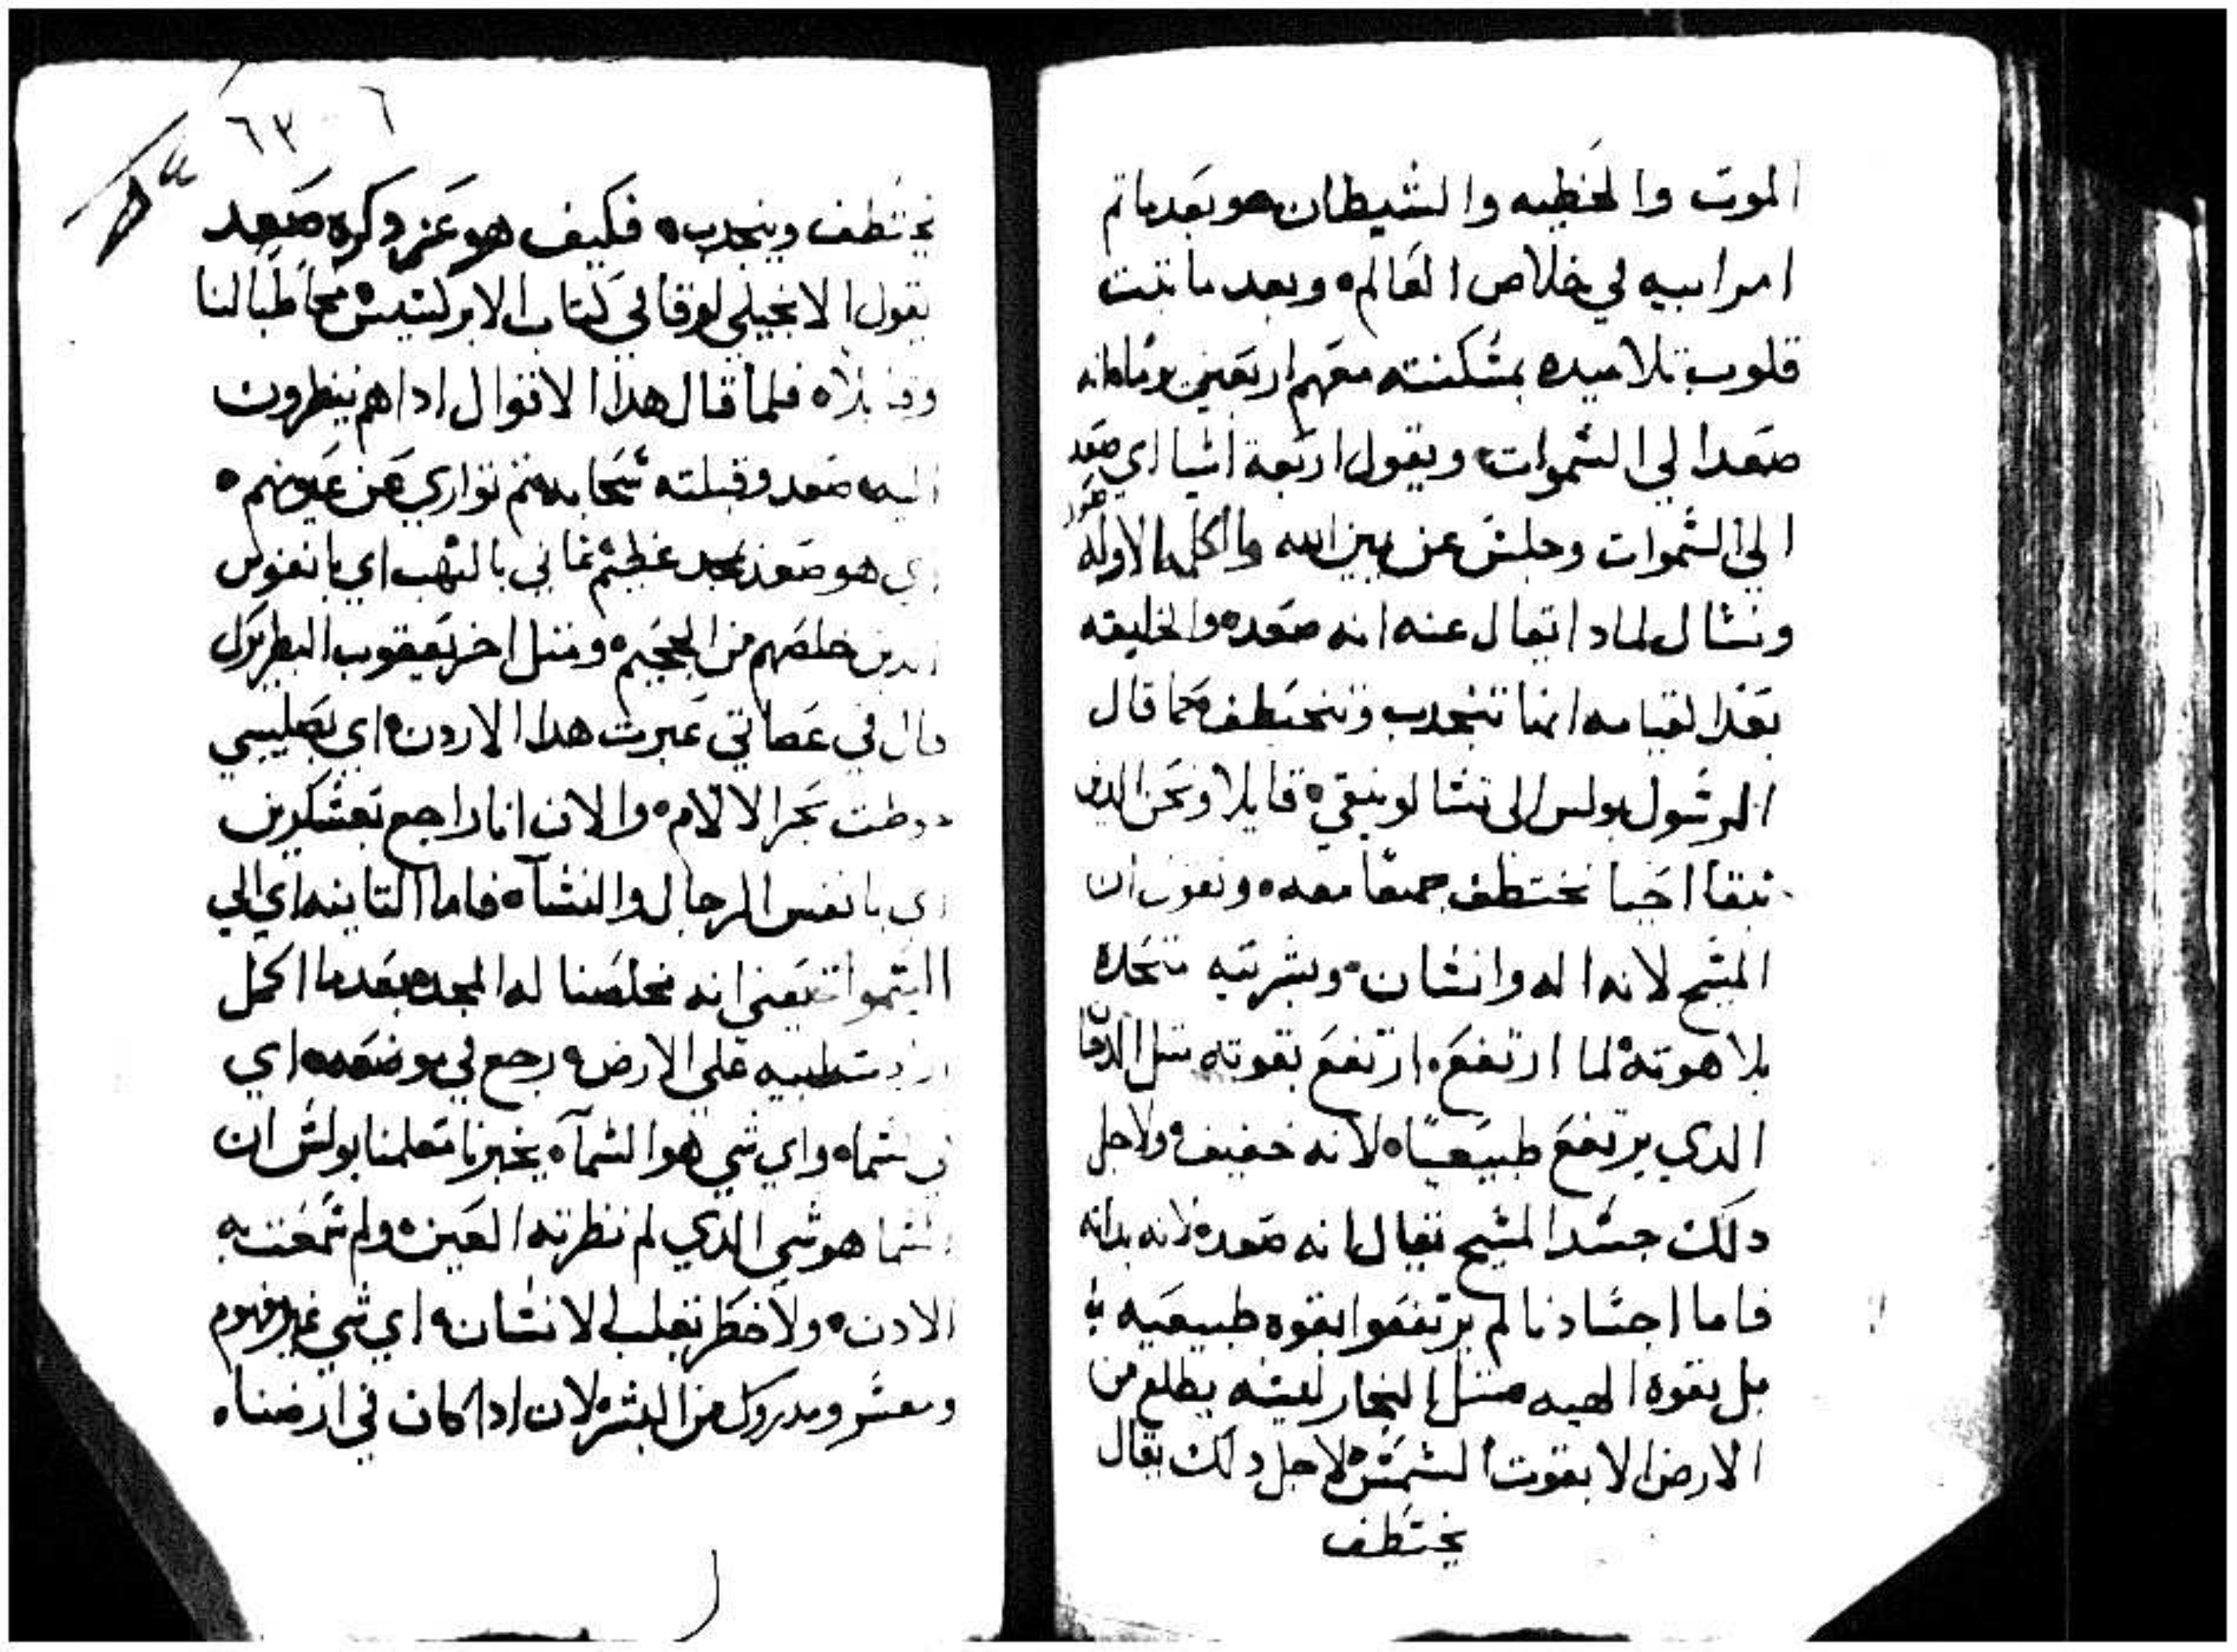 الموت والخطيه والشيطان هو بعدما تم
امر ابيه لي خلاص العالم ه وبعد ما تبت
قلوب تلاميده بمسكنته معهم اربعين يوما
صعد الي السموات ويقول اربعة اشيا اي صعد
الي السموات وجلس عن يمين الله واما الكلمه الاوله
ونسال لمادا يقال عنه انه صعد ه والخليقه
بعد القيامه انها تنجدب وتنخطف كما قال
الرسول بولس الي تسالونيقي ه قايلا ونحن الدين
نبقا احيا نختطف جميعا معه ه ونقول ان
المسيح لانه اله وانسان ه وبشريته متحده
بلاهوته لما ارتفع ه ارتفع بقوته متل الدخان
الدي يرتفع طبيعيا ه لانه خفيف ه ولاجل
دلك جسد المسيح نقال انه صعد ه لانه بداته
فاما اجسادنا لم يرتفعوا بقوه طبيعيه
بل بقوة الهيه متل البخار لعينه يطلع من
الارض الا بقوت الشمس ه لاجل دلك يقال
يختطف
٦٣ ٦
يختطف وينجدب ه فكيف هو عز دكره صعد
يقول الانجيلي لوقا في كتاب الابركسيس مخاطبا لنا
وقايلا ه فلما قال هدا الاقوال ادا هم ينظرون
اليه صعد وقبلته سحابه تم تواري عن عيونهم ه
اي هو صعد بمجد عظيم غاني بالنهب اي بانفوس
الدين خلصهم من الجحيم ه ومتل اخر يعقوب البطريرك
قال في عصاتي عبرت هدا الاردن ه اي بصليبي
دوطت بحر الالام ه والان انا راجع بعسكرين
اي بانفس الرجال والنساء ه فاما التانيه اي الي
السموات يعني انه مخلصنا له المجد ه بعد ما اكمل
علي الارض ه رجع لي موضعه اي
في سماه واي شي هو السماء ه يخبرنا معلمنا بولس ان
السما هو شي الدي لم نظرته العين ه ولم سمعت به
الادن ه ولا خطر بقلب الانسان ه اي شي غير مفهوم
ومعسر ومدروك من البشر ه لان ادا كان في ارضنا ه